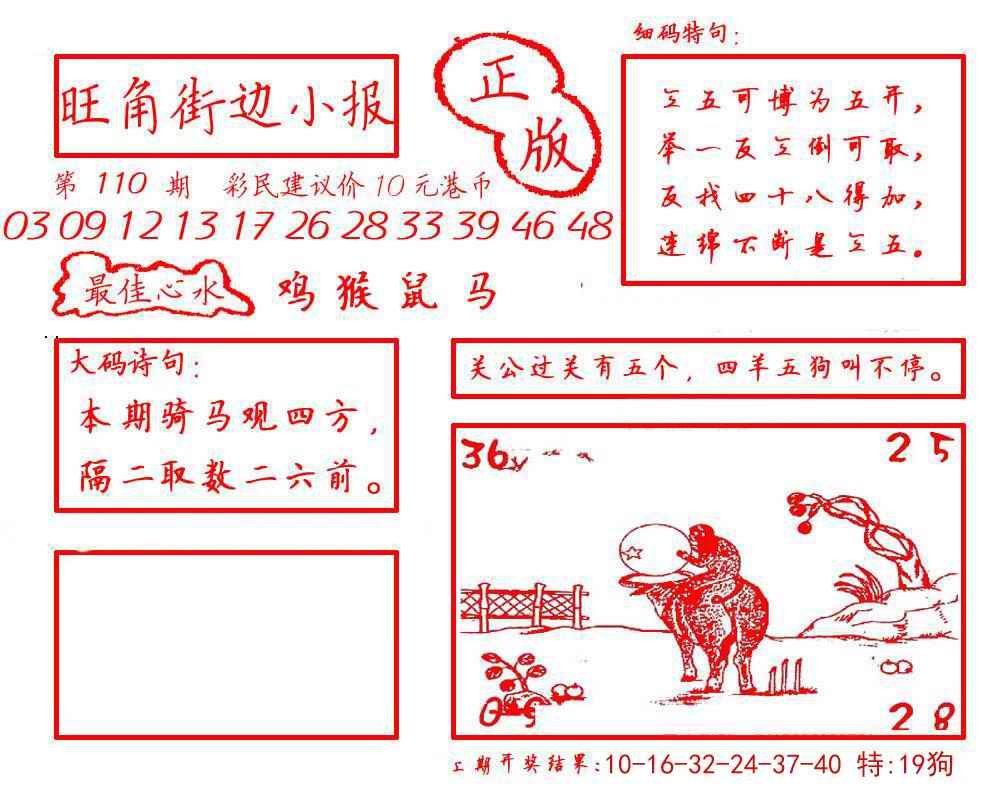 旺角街边小报
正版
第 110 期 彩民建议价10元港币
03 09 12 13 17 26 28 33 39 46 48
最佳心水 鸡 猴 鼠 马
细码特句：
三五可博为五开，
举一反三倒可取，
反找四十八得加，
连绵不断是三五。
大码诗句：
本期骑马观四方，
隔二取数二六前。
关公过关有五个，四羊五狗叫不停。
36
25
28
上期开奖结果：10-16-32-24-37-40 特:19狗